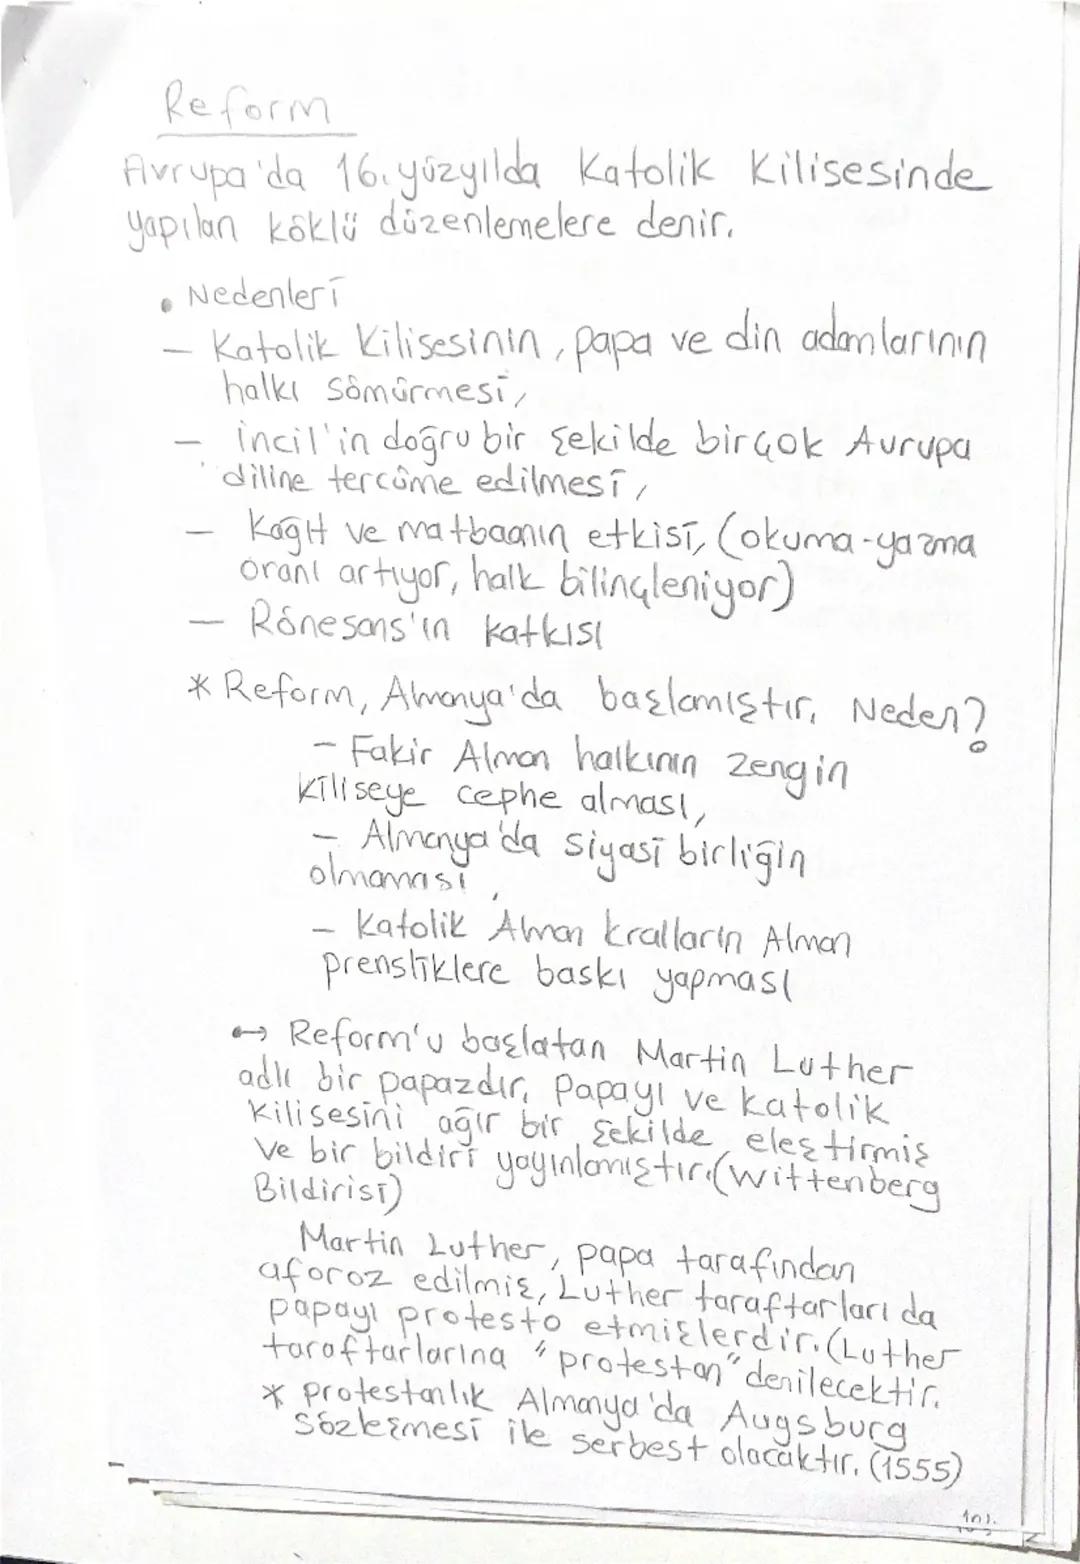 Reform
Avrupa'da 16. yüzyılda Katolik Kilisesinde
yapılan köklü düzenlemelere denir.
• Nedenleri
– Katolik Kilisesinin, papa ve din adamlarının
halkı sömürmesi,
– İncil'in doğru bir şekilde birçok Avrupa
diline tercüme edilmesi,
– Kağıt ve matbaanın etkisi, (okuma-yazma
oranı artıyor, halk bilinçleniyor)
– Rönesans'ın katkısı
* Reform, Almanya'da başlamıştır. Neden?
– Fakir Alman halkının zengin
kiliseye cephe alması,
– Almanya'da siyasi birliğin
olmaması,
– Katolik Alman kralların Alman
prensliklere baskı yapması
→ Reform'u başlatan Martin Luther
adlı bir papazdır. Papayı ve Katolik
Kilisesini ağır bir şekilde eleştirmiş
ve bir bildiri yayınlamıştır. (Wittenberg
Bildirisi)
Martin Luther, papa tarafından
aforoz edilmiş, Luther taraftarları da
papayı protesto etmişlerdir. (Luther
taraftarlarına "protestan" denilecektir.
* protestanlık Almanya'da Augsburg
Sözleşmesi ile serbest olacaktır. (1555)